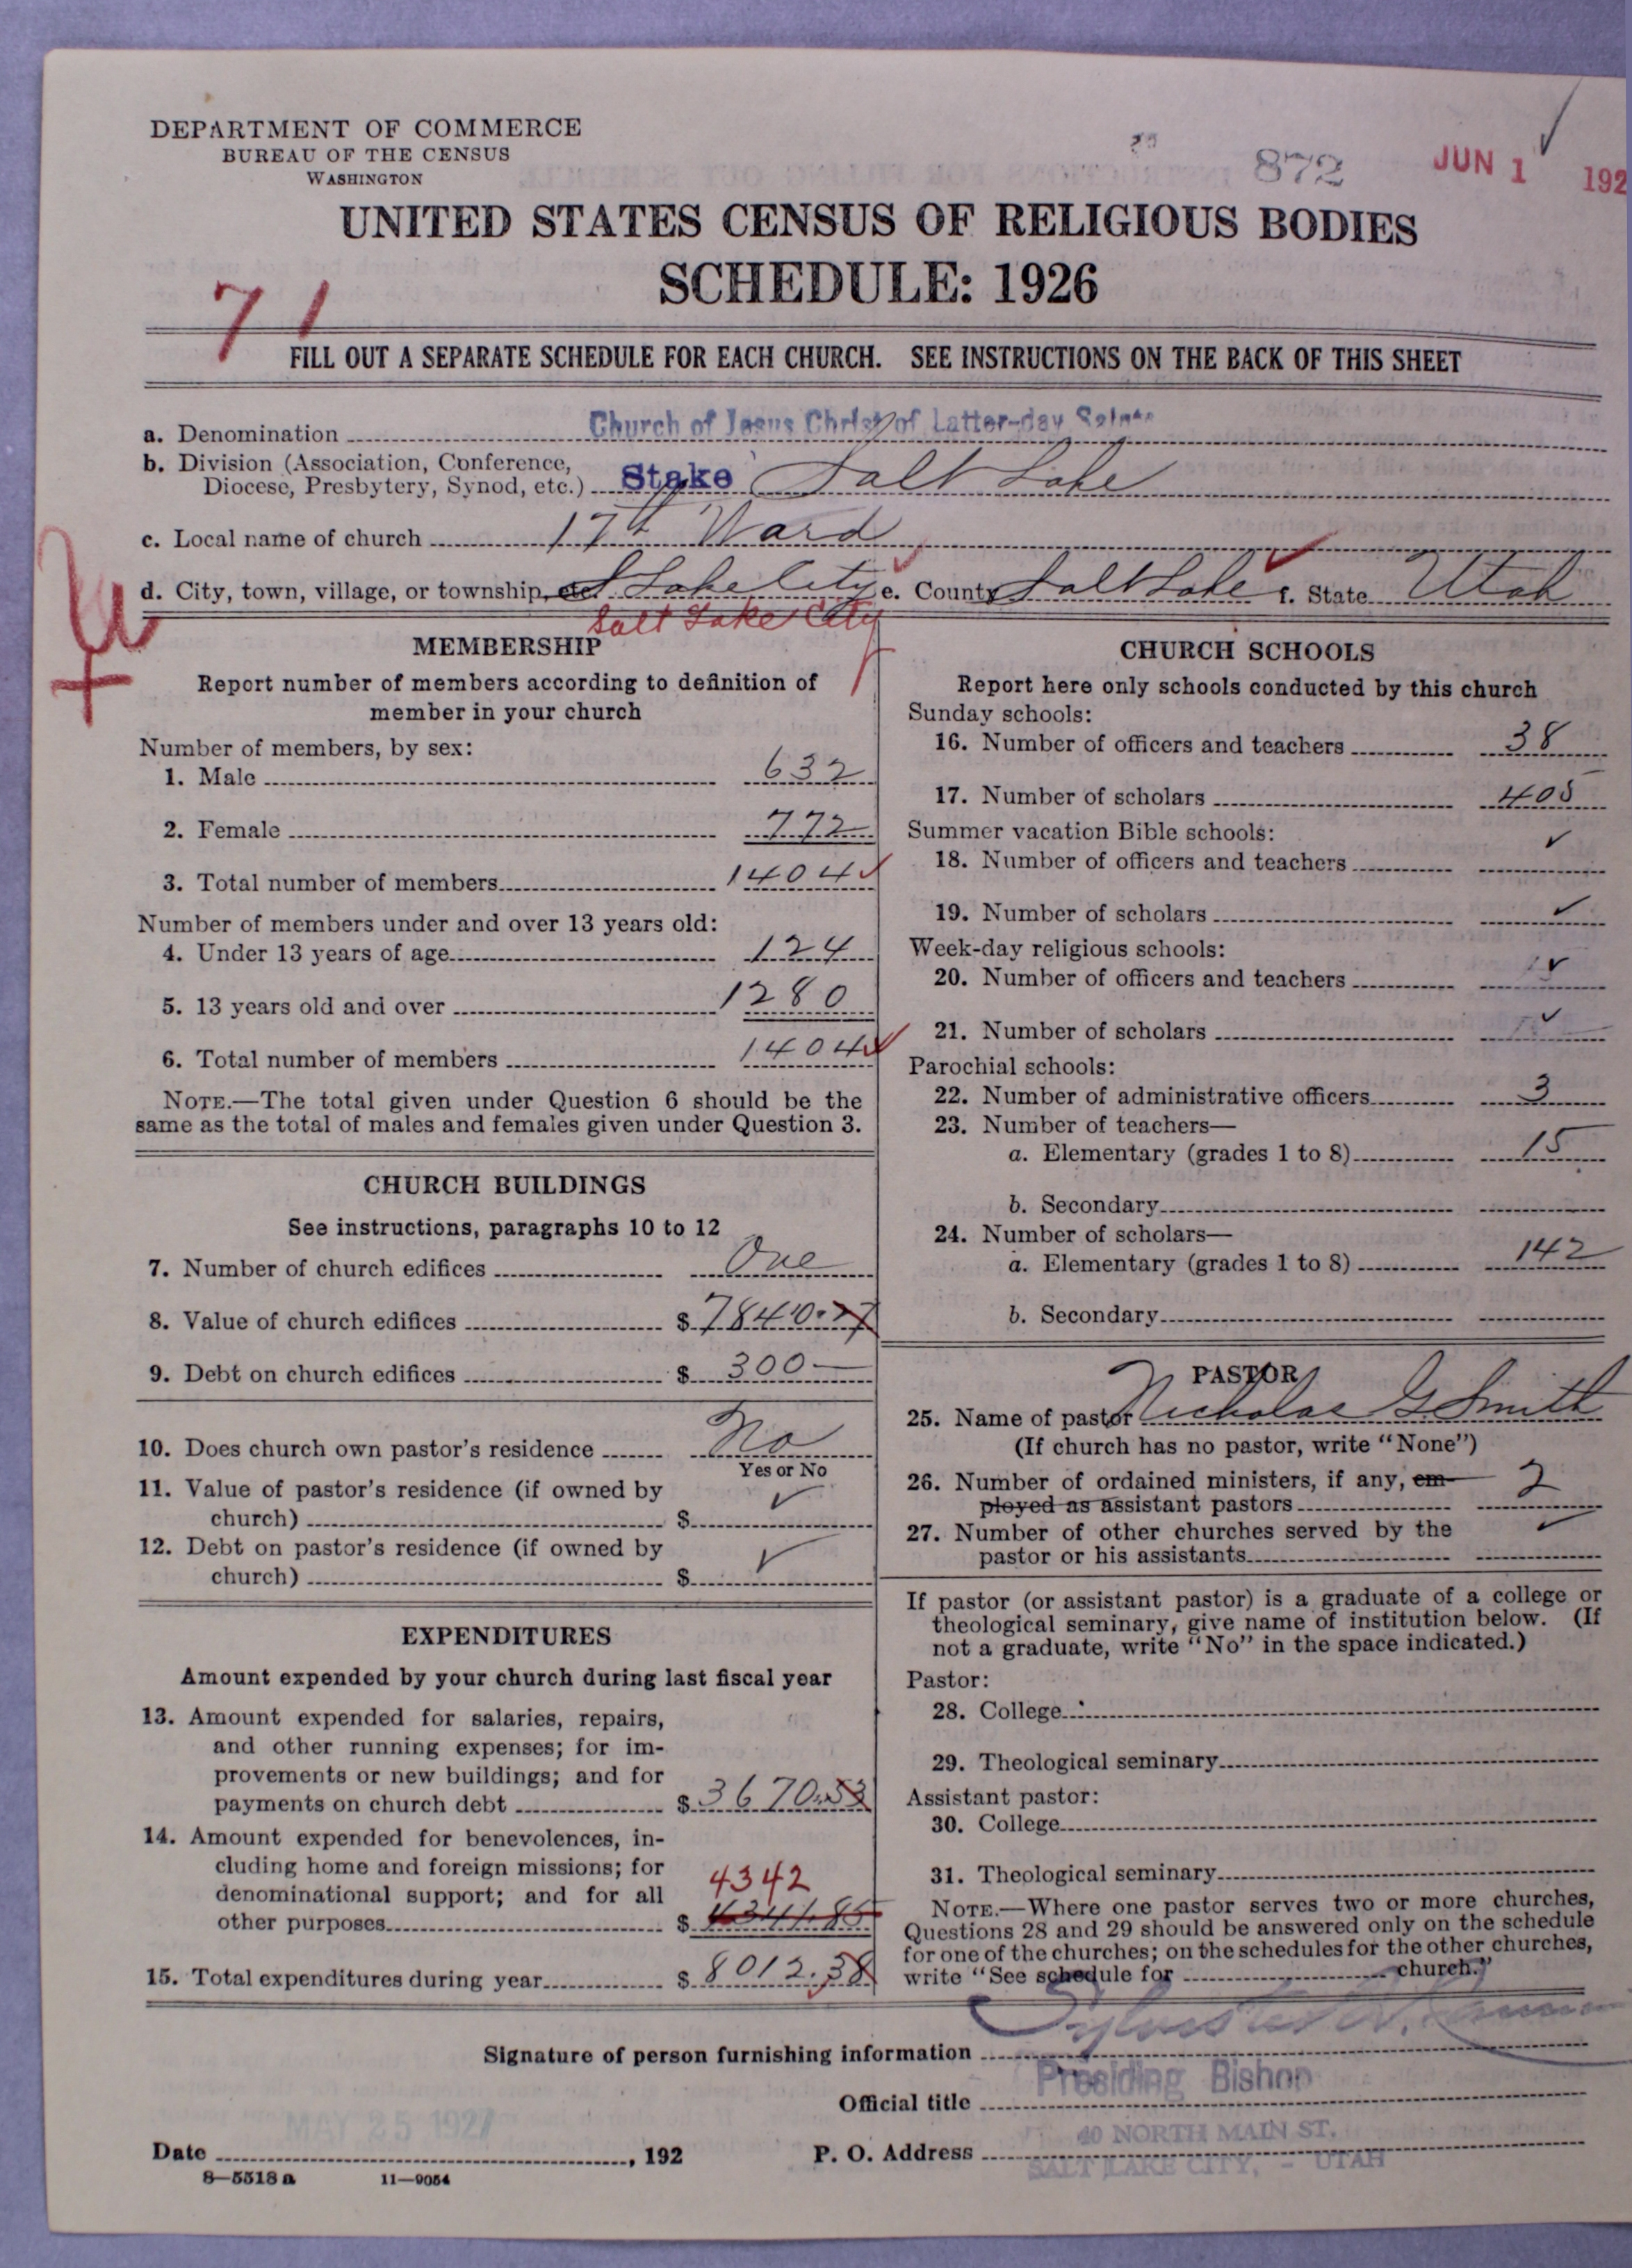 DEPARTMENT OF COMMERCE
BUREAU OF THE CENSUS
WASHINGTON
872
JUN 1 192
UNITED STATES CENSUS OF RELIGIOUS BODIES
SCHEDULE: 1926
71
FILL OUT A SEPARATE SCHEDULE FOR EACH CHURCH. SEE INSTRUCTIONS ON THE BACK OF THIS SHEET
a. Denomination Church of Jesus Christ of Latter-day Saints
b. Division (Association, Conference,
Diocese, Presbytery, Synod, etc.) Stake Salt Lake
c. Local name of church 17th Ward
d. City, town, village, or township, etc. S Lake City e. County Salt Lake f. State Utah
Salt Lake City
MEMBERSHIP
Report number of members according to definition of
member in your church
Number of members, by sex:
1. Male 632
2. Female 772
3. Total number of members 1404
Number of members under and over 13 years old:
4. Under 13 years of age 124
5. 13 years old and over 1280
6. Total number of members 1404
NOTE.—The total given under Question 6 should be the
same as the total of males and females given under Question 3.
CHURCH BUILDINGS
See instructions, paragraphs 10 to 12
7. Number of church edifices One
8. Value of church edifices $ 7840.77
9. Debt on church edifices $ 300—
10. Does church own pastor's residence No
Yes or No
11. Value of pastor's residence (if owned by
church) $ ✓
12. Debt on pastor's residence (if owned by
church) $ ✓
EXPENDITURES
Amount expended by your church during last fiscal year
13. Amount expended for salaries, repairs,
and other running expenses; for im-
provements or new buildings; and for
payments on church debt $ 3670.53
14. Amount expended for benevolences, in-
cluding home and foreign missions; for
denominational support; and for all
4342
other purposes $ 4341.85
15. Total expenditures during year $ 8012.38
CHURCH SCHOOLS
Report here only schools conducted by this church
Sunday schools:
16. Number of officers and teachers 38
17. Number of scholars 405
Summer vacation Bible schools:
18. Number of officers and teachers ✓
19. Number of scholars ✓
Week-day religious schools:
20. Number of officers and teachers ✓
21. Number of scholars ✓
Parochial schools:
22. Number of administrative officers 3
23. Number of teachers—
a. Elementary (grades 1 to 8) 15
b. Secondary
24. Number of scholars—
a. Elementary (grades 1 to 8) 142
b. Secondary
PASTOR
25. Name of pastor Nicholas G. Smith
(If church has no pastor, write "None")
26. Number of ordained ministers, if any, em-
ployed as assistant pastors 2
27. Number of other churches served by the
pastor or his assistants ✓
If pastor (or assistant pastor) is a graduate of a college or
theological seminary, give name of institution below. (If
not a graduate, write "No" in the space indicated.)
Pastor:
28. College
29. Theological seminary
Assistant pastor:
30. College
31. Theological seminary
NOTE.—Where one pastor serves two or more churches,
Questions 28 and 29 should be answered only on the schedule
for one of the churches; on the schedules for the other churches,
write "See schedule for church."
Signature of person furnishing information Sylvester
Official title Presiding Bishop
MAY 25 1927
Date , 192
P. O. Address 40 NORTH MAIN ST.
SALT LAKE CITY, - UTAH
8—5518 a 11—9054